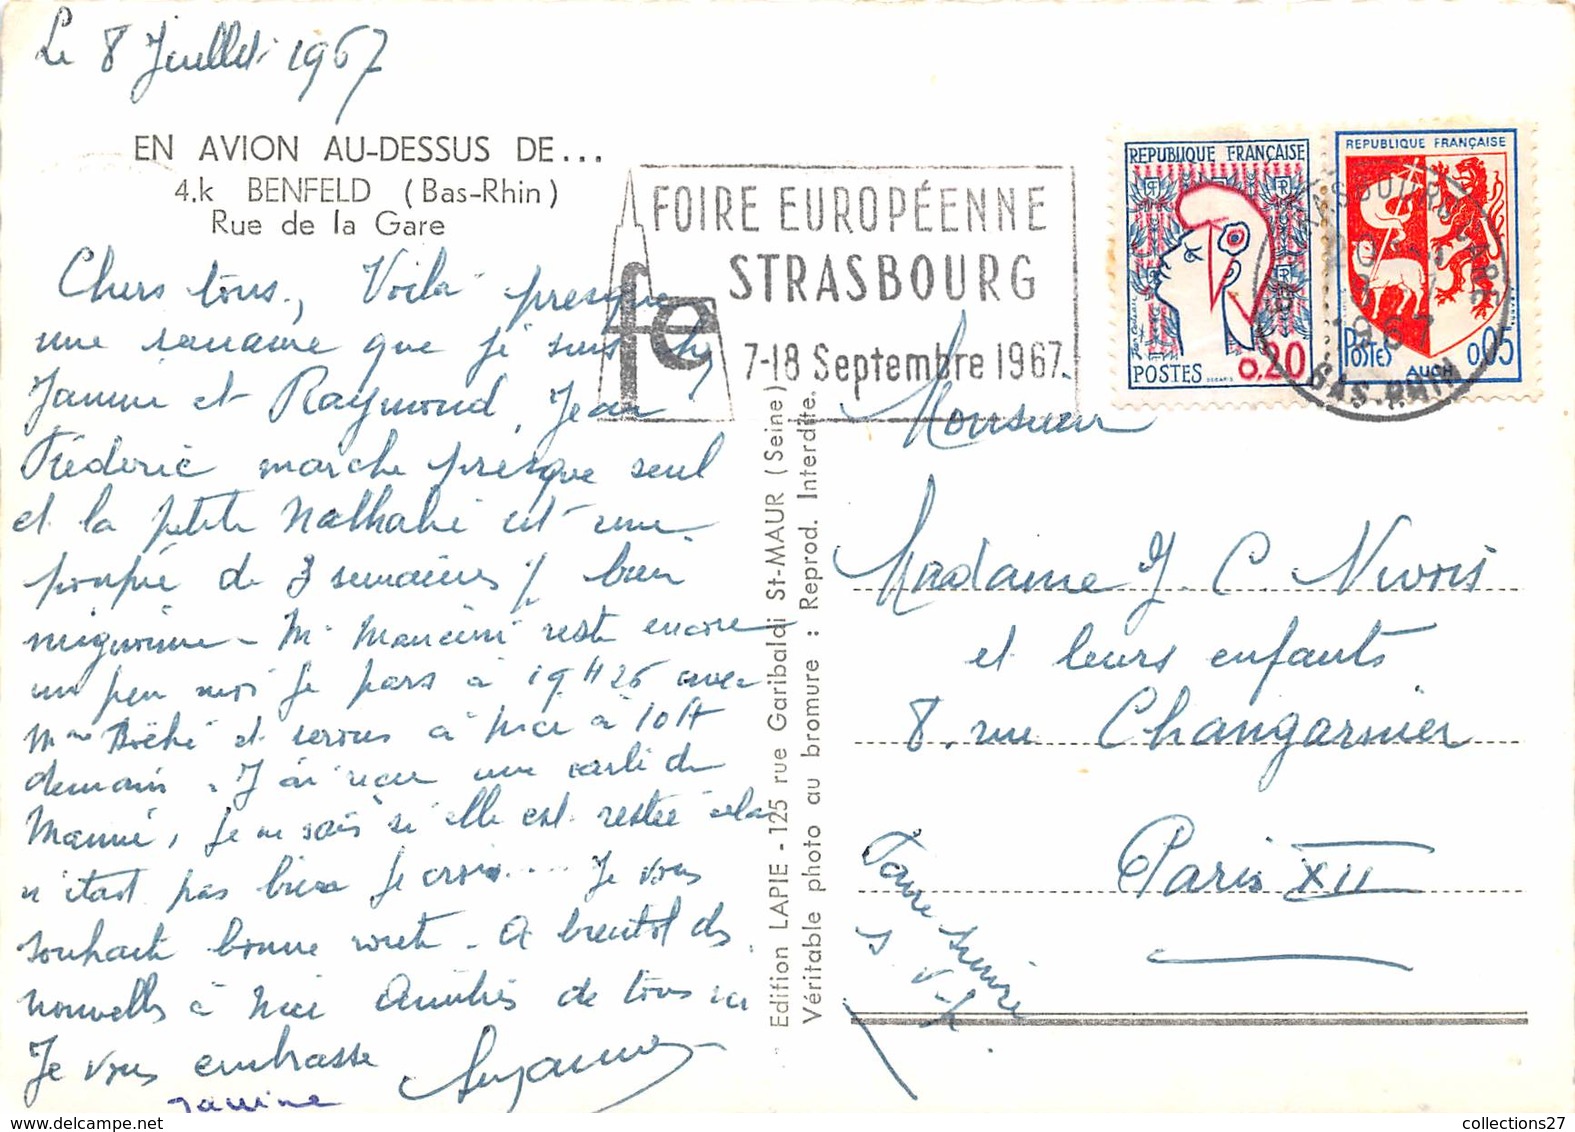 Le 8 Juillet 1967
EN AVION AU-DESSUS DE...
4.k BENFELD (Bas-Rhin)
Rue de la Gare
Chers tous, Voilà presque
une semaine que je suis chez
Janine et Raymond, Jean
Frédéric marche presque seul
et la petite Nathalie est une
poupée de 3 semaines ½ bien
mignonne - Mr Mancini reste encore
un peu moi je pars à 19H26 avec
Mme et serons à Nice à 10h
demain. J'ai reçu une carte de
Mamie, je ne sais si elle est restée cela
n'était pas bien je crois.... Je vous
souhaite bonne route - A bientôt des
nouvelles à Nice Amitiés de tous ici
Je vous embrasse Suzanne
Janine
FOIRE EUROPÉENNE
STRASBOURG
7-18 Septembre 1967
fe
REPUBLIQUE FRANÇAISE
POSTES 0.20
REPUBLIQUE FRANÇAISE
POSTES 0,05
AUCH
STRASBOURG GARE
1967
BAS-RHIN
Edition LAPIE - 125 rue Garibaldi St-MAUR (Seine)
Véritable photo au bromure : Reprod. Interdite.
Monsieur
Madame J. C. Nivois
et leurs enfants
8, rue Changarnier
Paris XII
Faire suivre
S.V.P
collections27